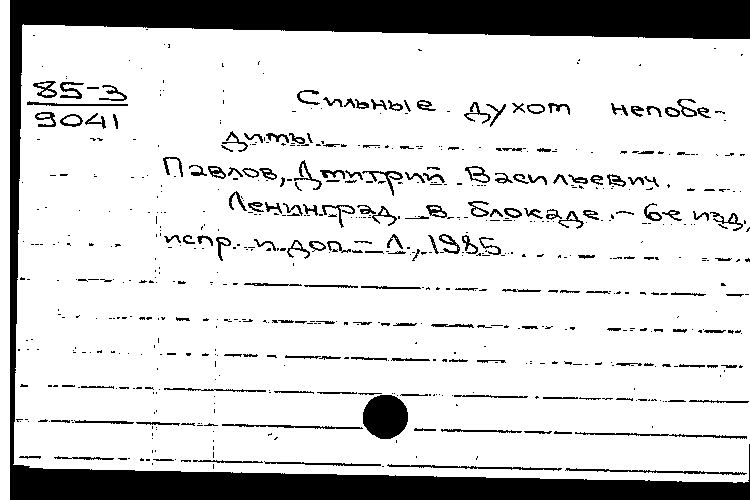 85-3
9041
Сильные духом непобе-
димы.
Павлов, Дмитрий Васильевич.
Ленинград в блокаде. - 6-е изд.,
испр. и доп. - Л., 1985